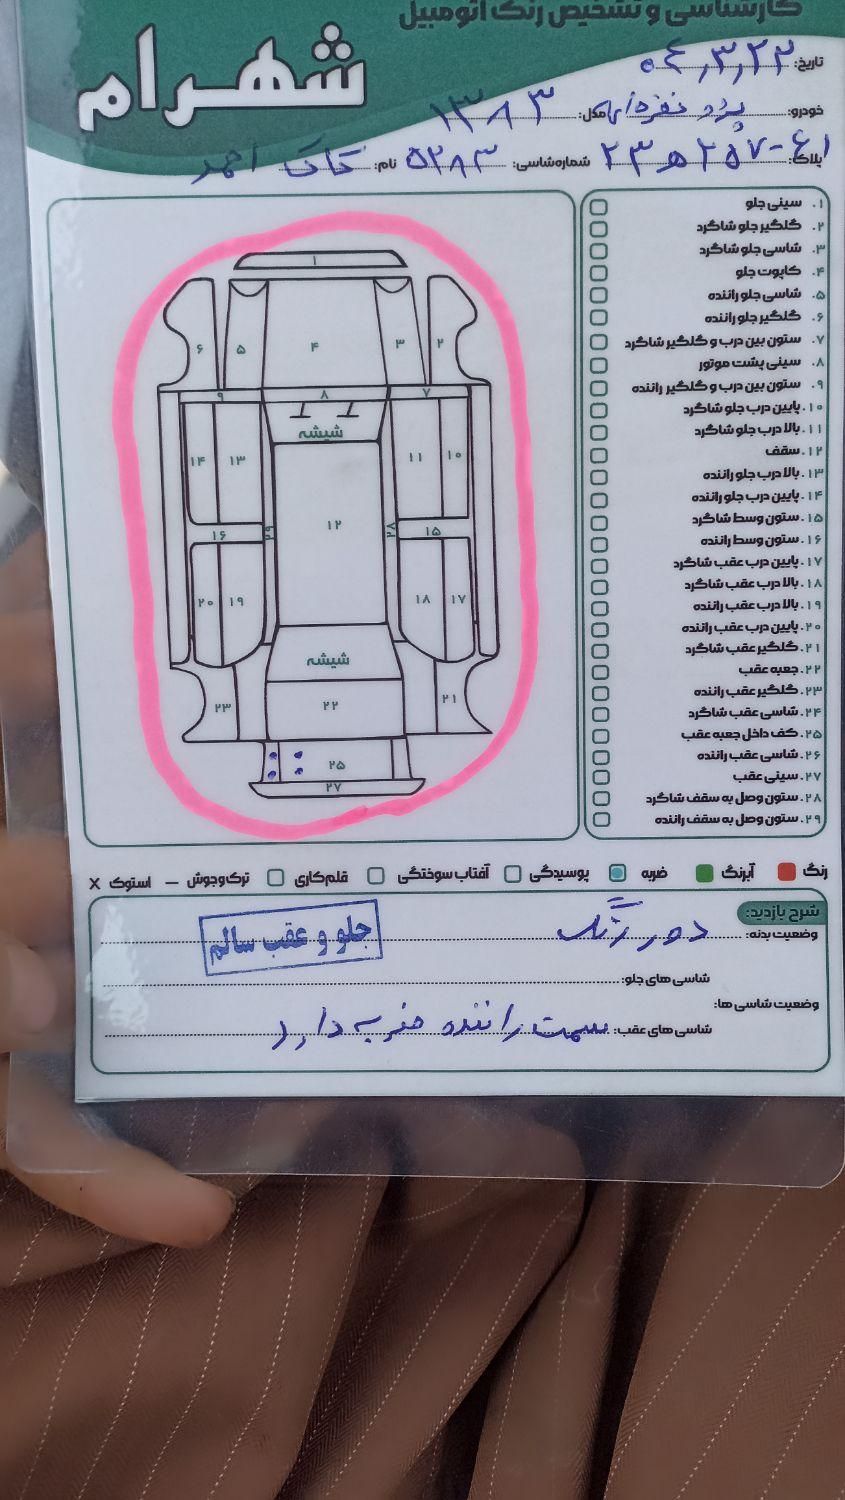 کارشناسی و تشخیص رنگ اتومبیل
شهرام
تاریخ: ۰۴,۳,۲۲
خودرو: پژو نقره‌ای مدل: ۱۳۸۳
پلاک: ۲۳ ه ۲۵۷-۴۱ شماره شاسی: ۵۲۸۳ نام: کاک احمد
۱. سینی جلو
۲. گلگیر جلو شاگرد
۳. شاسی جلو شاگرد
۴. کاپوت جلو
۵. شاسی جلو راننده
۶. گلگیر جلو راننده
۷. ستون بین درب و گلگیر شاگرد
۸. سینی پشت موتور
۹. ستون بین درب و گلگیر راننده
۱۰. پایین درب جلو شاگرد
۱۱. بالا درب جلو شاگرد
۱۲. سقف
۱۳. بالا درب جلو راننده
۱۴. پایین درب جلو راننده
۱۵. ستون وسط شاگرد
۱۶. ستون وسط راننده
۱۷. پایین درب عقب شاگرد
۱۸. بالا درب عقب شاگرد
۱۹. بالا درب عقب راننده
۲۰. پایین درب عقب راننده
۲۱. گلگیر عقب شاگرد
۲۲. جعبه عقب
۲۳. گلگیر عقب راننده
۲۴. شاسی عقب شاگرد
۲۵. کف داخل جعبه عقب
۲۶. شاسی عقب راننده
۲۷. سینی عقب
۲۸. ستون وصل به سقف شاگرد
۲۹. ستون وصل به سقف راننده
۱
۲ ۳ ۴ ۵ ۶
۷ ۸ ۹
شیشه
۱۰ ۱۱ ۱۳ ۱۴
۱۲
۱۵ ۲۸ ۲۹ ۱۶
۱۷ ۱۸ ۱۹ ۲۰
شیشه
۲۱ ۲۲ ۲۳
۲۵
۲۷
رنگ آبرنگ ضربه پوسیدگی آفتاب سوختگی قلم‌کاری ترک و جوش — استوک X
شرح بازدید:
وضعیت بدنه: دور رنگ جلو و عقب سالم
شاسی های جلو:
وضعیت شاسی ها:
شاسی های عقب: سمت راننده ضربه دارد